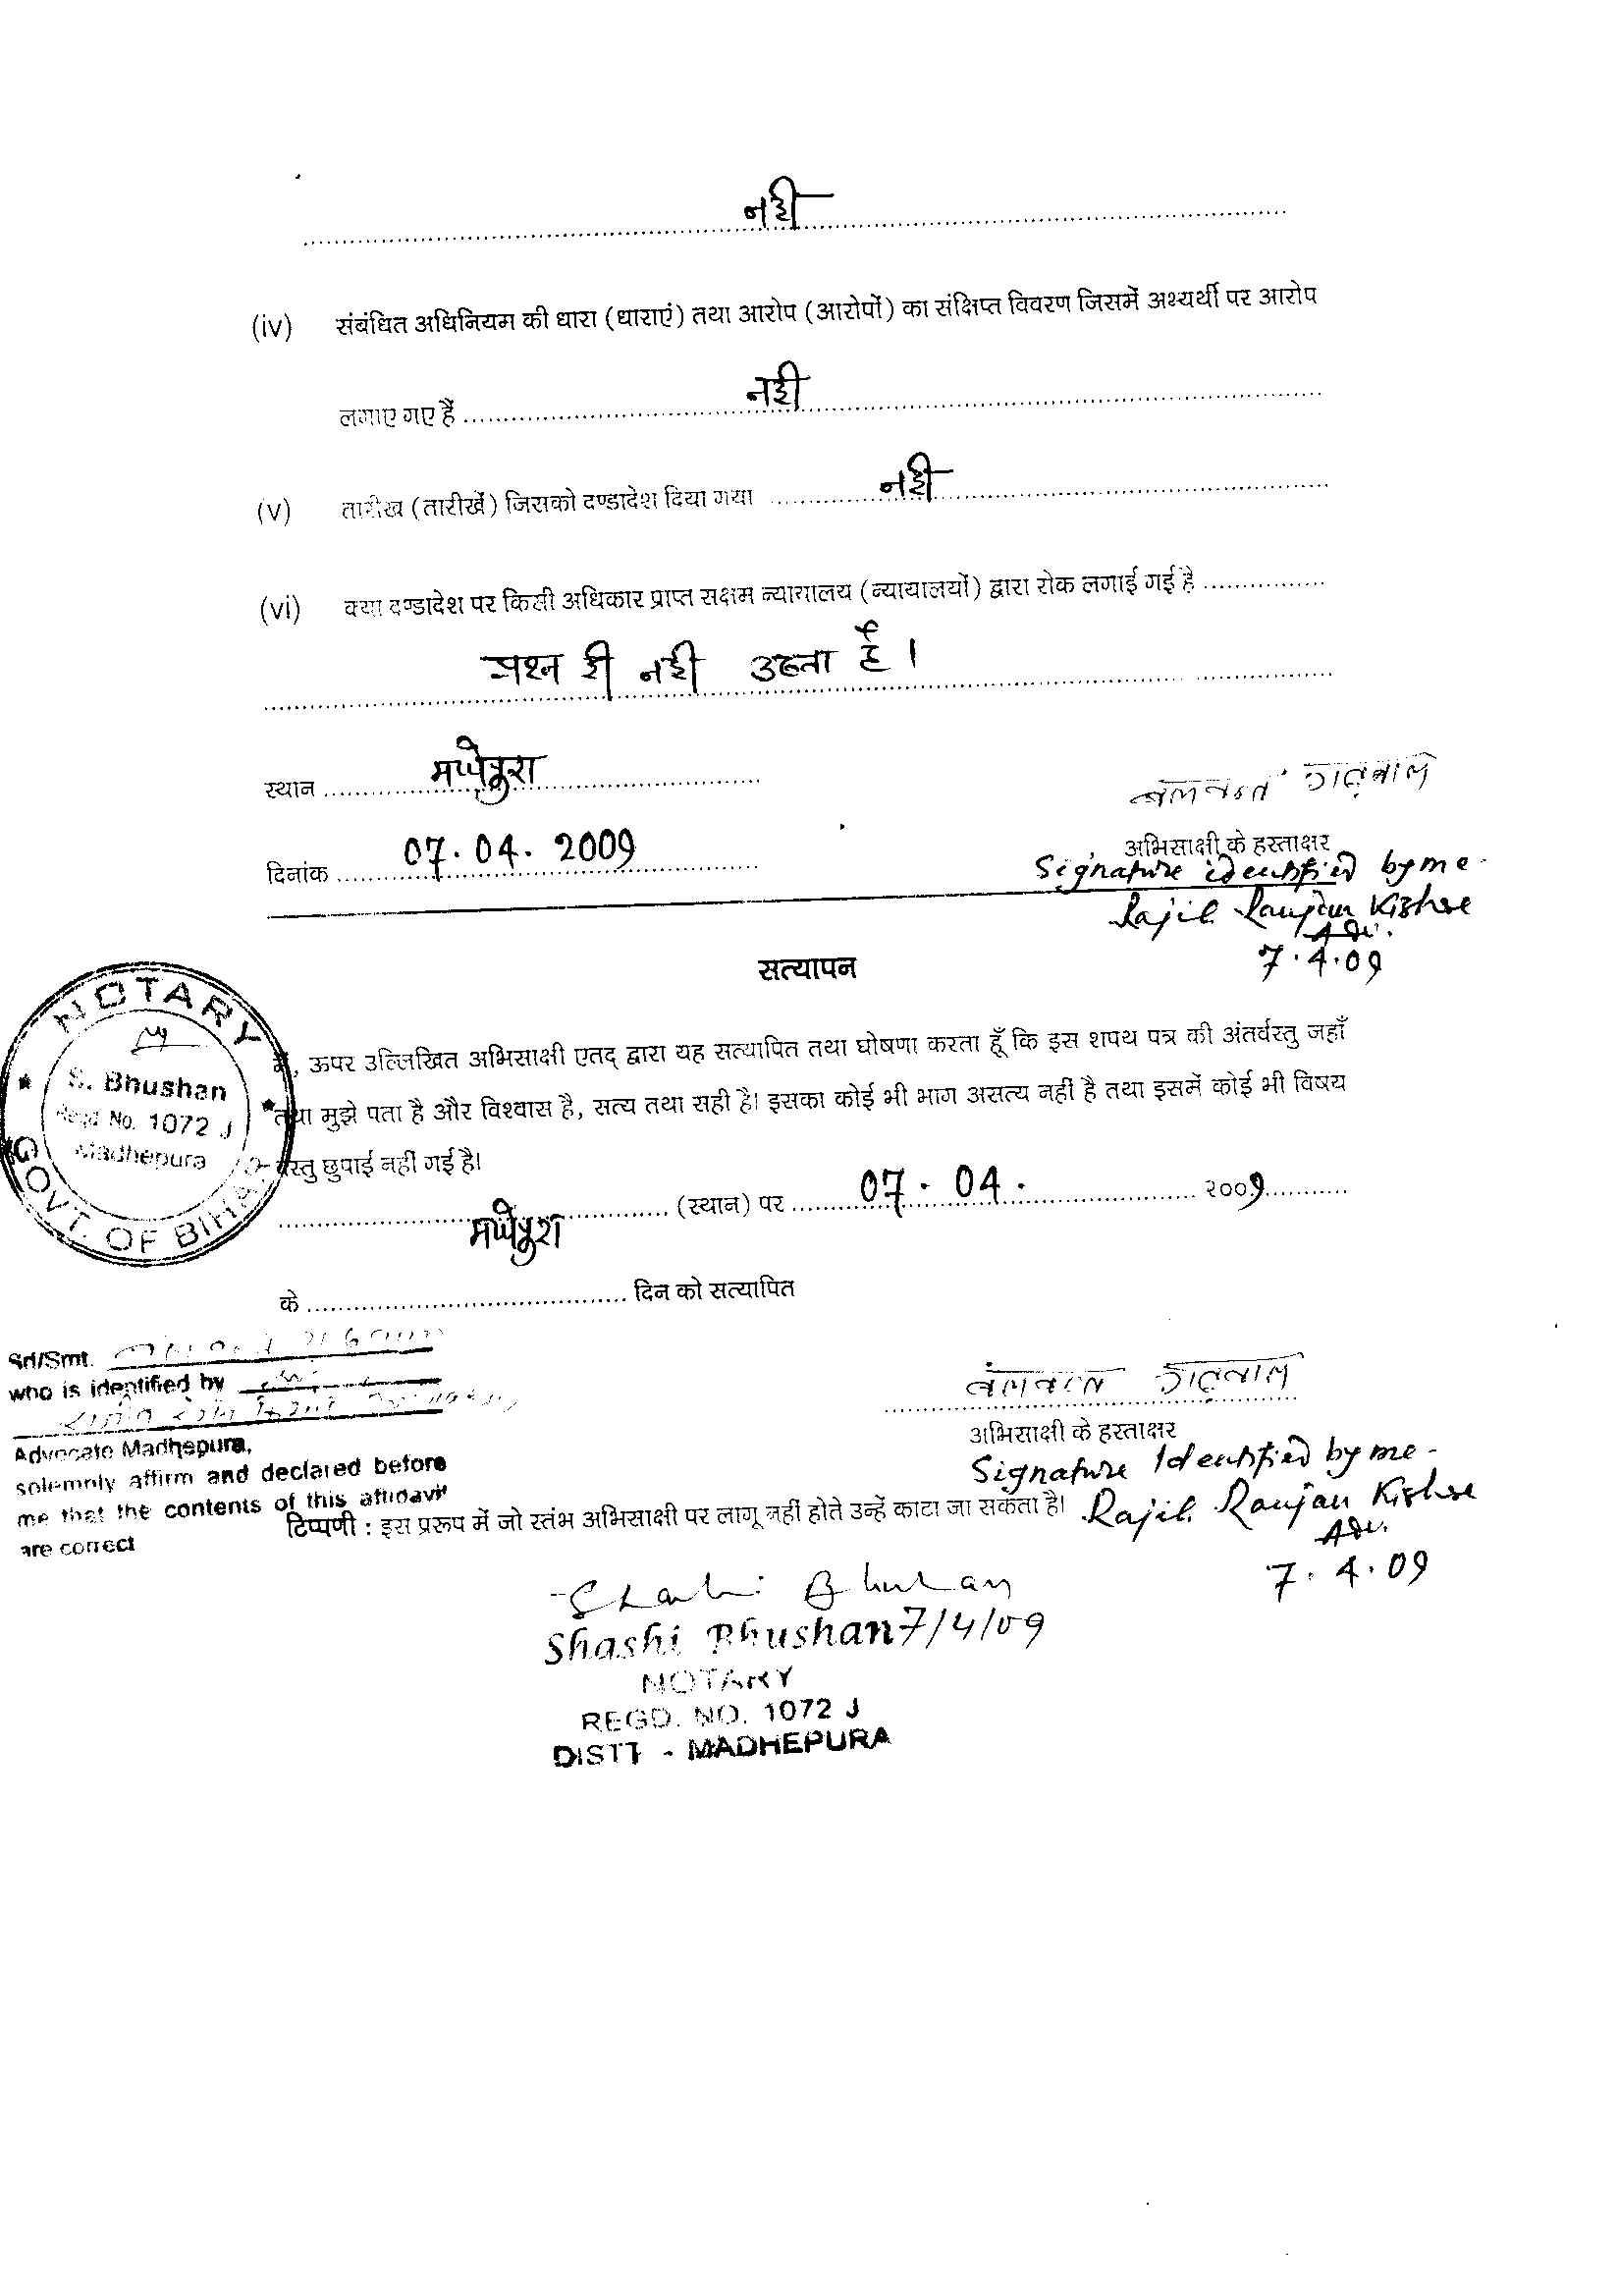 नही
(iv) संबंधित अधिनियम की धारा (धाराएं) तथा आरोप (आरोपों) का संक्षिप्त विवरण जिसमें अभ्यर्थी पर आरोप
लगाए गए हैं .......... नही
(v) तारीख (तारीखें) जिसको दण्डादेश दिया गया .......... नही
(vi) क्या दण्डादेश पर किसी अधिकार प्राप्त सक्षम न्यायालय (न्यायालयों) द्वारा रोक लगाई गई है ..........
प्रश्न ही नही उठता है।
स्थान .......... मधेपुरा
बलवन्त गढ़वाल
दिनांक .......... 07.04.2009
अभिसाक्षी के हस्ताक्षर
Signature identified by me -
Rajib Ranjan Kishore
Adv.
7.4.09
सत्यापन
मैं, ऊपर उल्लिखित अभिसाक्षी एतद् द्वारा यह सत्यापित तथा घोषणा करता हूँ कि इस शपथ पत्र की अंतर्वस्तु जहाँ
तथा मुझे पता है और विश्वास है, सत्य तथा सही है। इसका कोई भी भाग असत्य नहीं है तथा इसमें कोई भी विषय
वस्तु छुपाई नहीं गई है।
NOTARY
S. Bhushan
Regd No. 1072 J
Madhepura
GOVT. OF BIHAR
.......... मधेपुरा .......... (स्थान) पर .......... 07.04. .......... २००9 ..........
के .......... दिन को सत्यापित
Sri/Smt.
who is identified by
Advocate Madhepura,
solemnly affirm and declared before
me that the contents of this affidavit
are correct
बलवन्त गढ़वाल
अभिसाक्षी के हस्ताक्षर
Signature Identified by me -
Rajib Ranjan Kishore
Adv.
7.4.09
टिप्पणी : इस प्ररूप में जो स्तंभ अभिसाक्षी पर लागू नहीं होते उन्हें काटा जा सकता है।
Shashi Bhushan
Shashi Bhushan 7/4/09
NOTARY
REGD. NO. 1072 J
DISTT - MADHEPURA